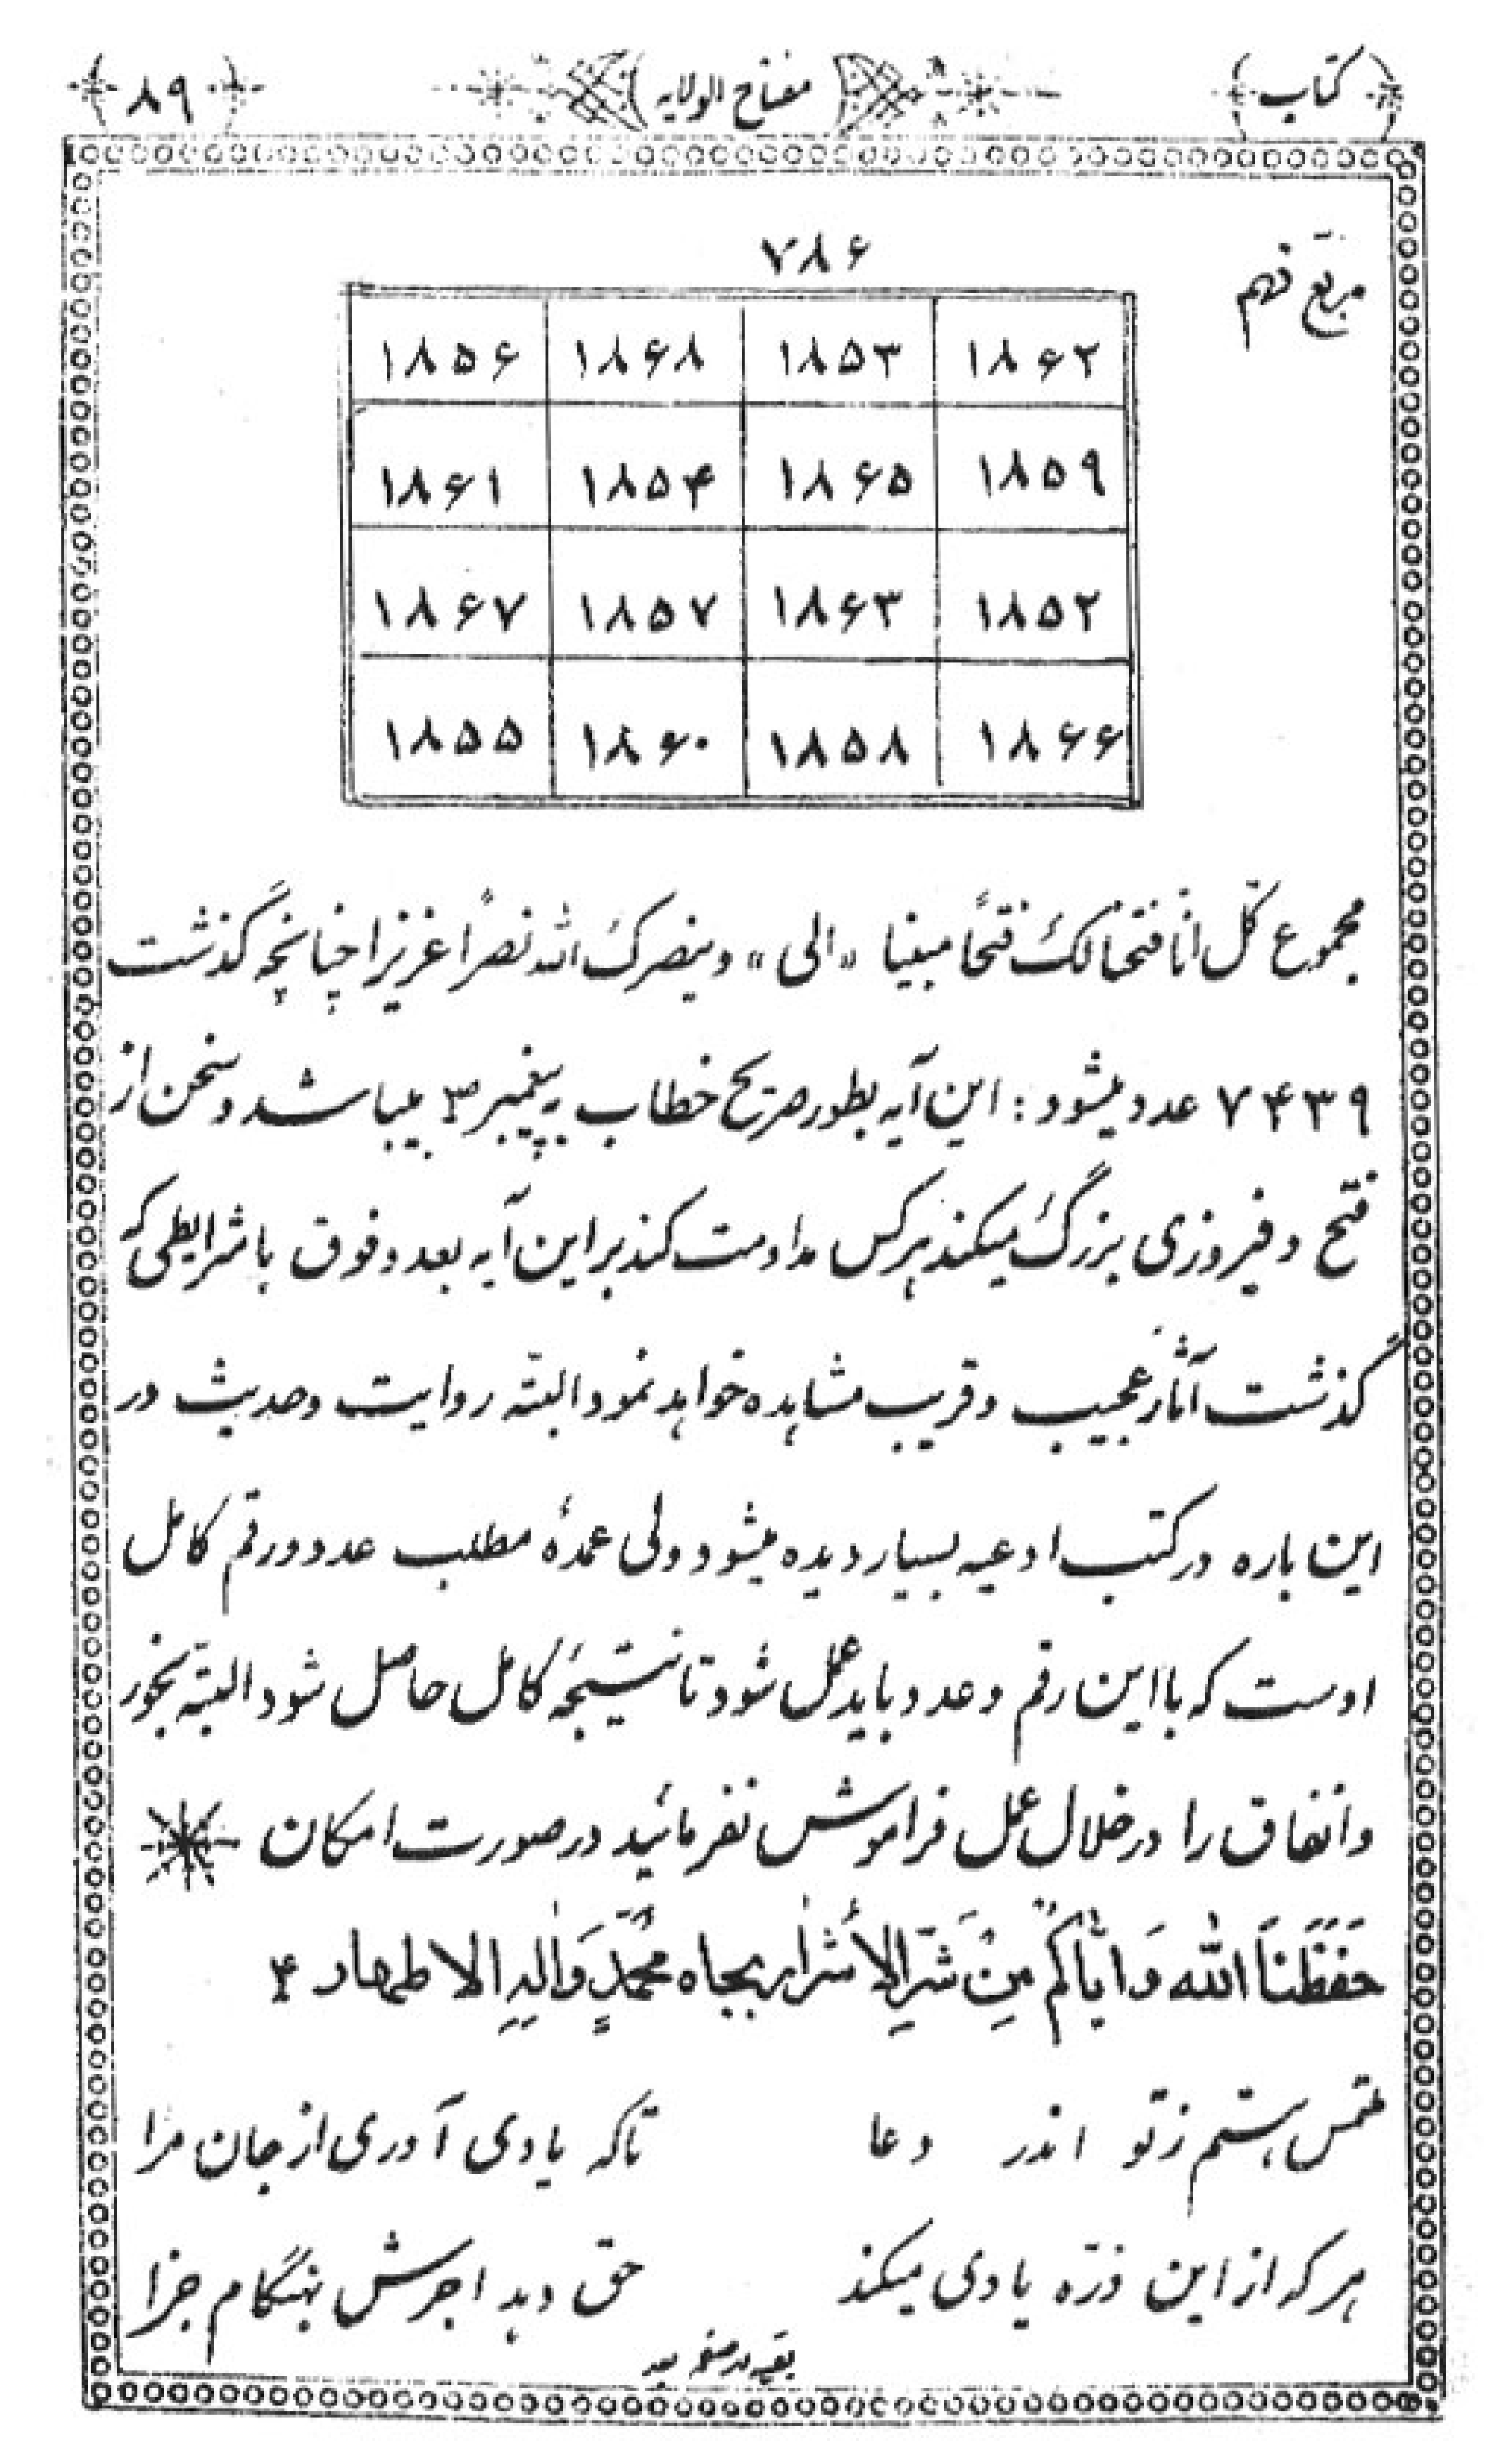 کتاب مفتاح الولایه ۸۹
مربّع نهم
۷۸۶
۱۸۶۲ ۱۸۵۳ ۱۸۶۸ ۱۸۵۶
۱۸۵۹ ۱۸۶۵ ۱۸۵۴ ۱۸۶۱
۱۸۵۲ ۱۸۶۳ ۱۸۵۷ ۱۸۶۷
۱۸۶۶ ۱۸۵۸ ۱۸۶۰ ۱۸۵۵
مجموع کلّ انّا فتحنا لکَ فتحًا مبینا «الی» و ینصرکَ الله نصرًا عزیزا چنانچه گذشت
۷۴۳۹ عدد میشود : این آیه بطور صریح خطاب به پیغمبر ص میباشد و سخن از
فتح و فیروزی بزرگ میکند هرکس مداومت کند بر این آیه بعدد فوق با شرایطی که
گذشت آثار عجیب و قریب مشاهده خواهد نمود البتّه روایت و حدیث در
این باره در کتب ادعیه بسیار دیده میشود ولی عمدهٔ مطلب عدد و رقم کامل
اوست که با این رقم و عدد باید عمل شود تا نتیجهٔ کامل حاصل شود البتّه بخور
و انفاق را در خلال عمل فراموش نفرمائید در صورت امکان
حَفَظَنَا اللهُ وَ اِیّاکُم مِن شَرِّ الاَشرارِ بجاه مُحَمَّدٍ وَ الِهِ الاطهار ۴
ملتمس هستم ز تو اندر دعا تا که یادی آوری از جان مرا
هر که از این ذرّه یادی میکند حق دهد اجرش بهنگام جزا
بقیه در صفحه بعد